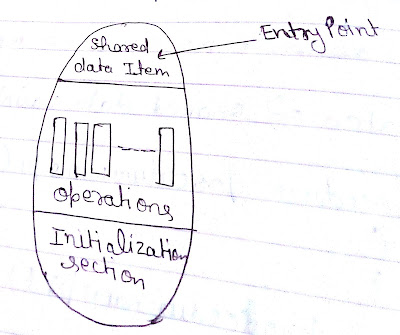 Shared
data Item
Entry Point
operations
Initialization
section